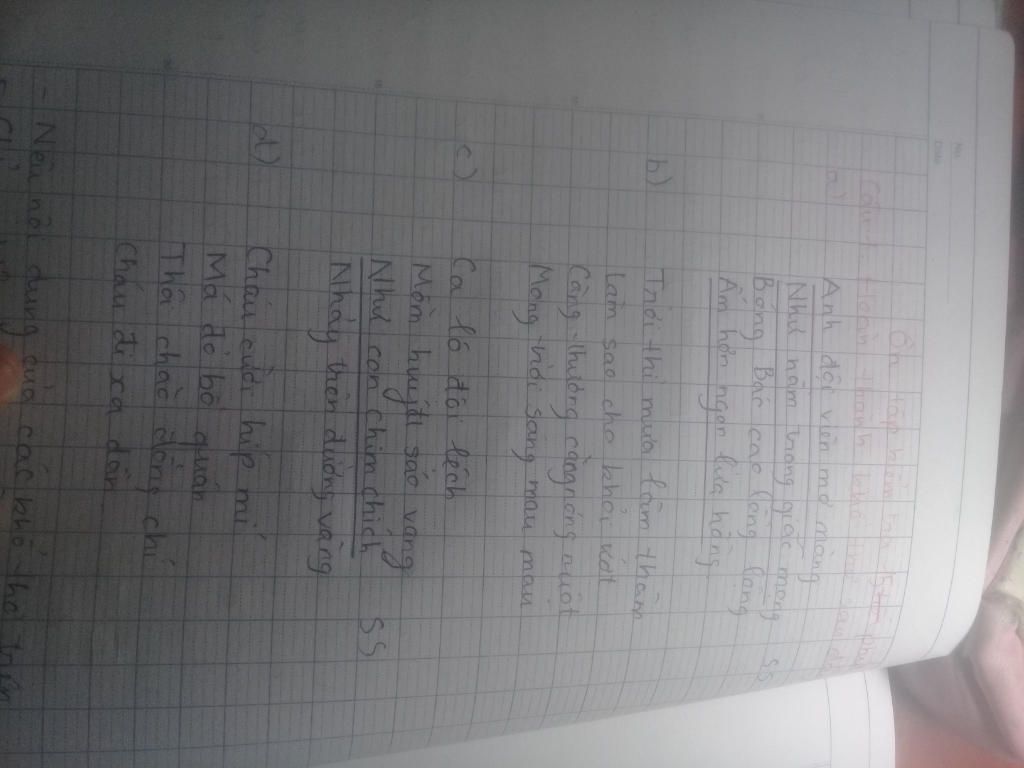 No.
Date
Ôn tập kiểm tra 15
Câu 1. Hoàn thành khổ thơ sau
a)
Anh đội viên mơ màng
Như nằm trong giấc mộng
Bóng Bác cao lồng lộng
Ấm hơn ngọn lửa hồng
SS
b)
Trời thì mưa lâm thâm
Làm sao cho khỏi ướt
Càng thương càng nóng ruột
Mong trời sáng mau mau
c)
Ca lô đội lệch
Mồn huýt sáo vang
Như con chim chích
SS
Nhảy trên đường vàng
d)
Cháu cười híp mí
Má đỏ bồ quân
Thôi chào đồng chí
Cháu đi xa dần
- Nêu nội dung của các khổ thơ trên